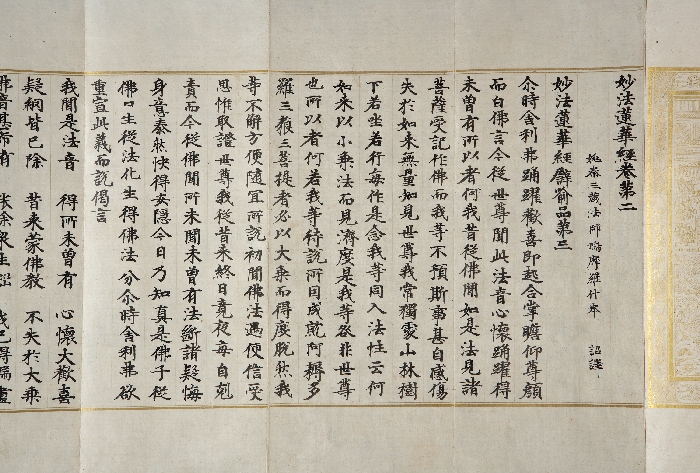 妙法蓮華經卷第二
姚秦三藏法師鳩摩羅什奉 詔譯
妙法蓮華經譬喻品第三
尒時舍利弗踊躍歡喜即起合掌瞻仰尊顔
而白佛言今從世尊聞此法音心懷踊躍得
未曾有所以者何我昔從佛聞如是法見諸
菩薩受記作佛而我等不預斯事甚自感傷
失於如來無量知見世尊我常獨處山林樹
下若坐若行每作是念我等同入法性云何
如來以小乘法而見濟度是我等咎非世尊
也所以者何若我等待說所因成就阿耨多
羅三藐三菩提者必以大乘而得度脫然我
等不解方便隨宜所說初聞佛法遇便信受
思惟取證世尊我從昔來終日竟夜每自剋
責而今從佛聞所未聞未曾有法斷諸疑悔
身意泰然快得安隱今日乃知真是佛子從
佛口生從法化生得佛法分尒時舍利弗欲
重宣此義而說偈言
我聞是法音 得所未曾有 心懷大歡喜
疑網皆已除 昔來蒙佛教 不失於大乘
佛音甚希有